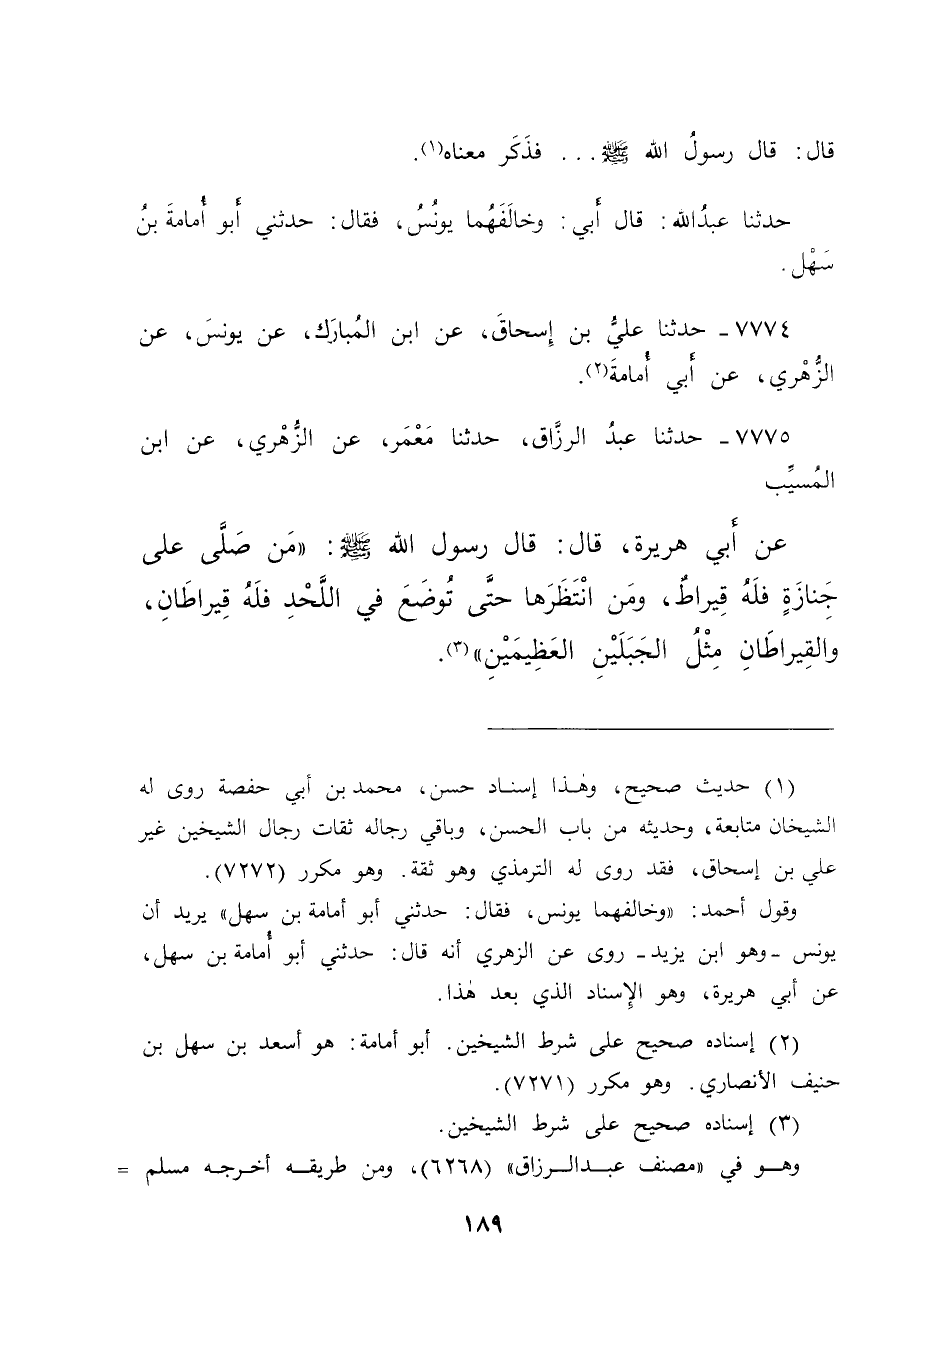 قال: قال رسولُ الله ﷺ... فذَكَر معناه(١).
حدثنا عبدُالله: قال أَبي: وخالَفَهُما يونُسُ، فقال: حدثني أَبو أُمامةَ بنُ
سَهْل.
٧٧٧٤ ـ حدثنا عليُّ بن إِسحاقَ، عن ابن المُبارَك، عن يونسَ، عن
الزُّهْري، عن أَبي أُمامةَ(٢).
٧٧٧٥ ـ حدثنا عبدُ الرزَّاق، حدثنا مَعْمَر، عن الزُّهْري، عن ابن
المُسيِّب
عن أَبي هريرة، قال: قال رسول الله ﷺ: «مَن صَلَّى على
جَنازَةٍ فلَهُ قِيراطٌ، ومَن انْتَظَرَها حتَّى تُوضَعَ في اللَّحْدِ فلَهُ قِيراطَانِ،
والقِيراطَانِ مِثْلُ الجَبَلَيْنِ العَظِيمَيْنِ»(٣).
(١) حديث صحيح، وهٰذا إسناد حسن، محمد بن أبي حفصة روى له
الشيخان متابعة، وحديثه من باب الحسن، وباقي رجاله ثقات رجال الشيخين غير
علي بن إسحاق، فقد روى له الترمذي وهو ثقة. وهو مكرر (٧٢٧٢).
وقول أحمد: «وخالفهما يونس، فقال: حدثني أبو أمامة بن سهل» يريد أن
يونس ـ وهو ابن يزيد ـ روى عن الزهري أنه قال: حدثني أبو أُمامة بن سهل،
عن أبي هريرة، وهو الإسناد الذي بعد هٰذا.
(٢) إسناده صحيح على شرط الشيخين. أبو أمامة: هو أسعد بن سهل بن
حنيف الأنصاري. وهو مكرر (٧٢٧١).
(٣) إسناده صحيح على شرط الشيخين.
وهو في «مصنف عبدالرزاق» (٦٢٦٨)، ومن طريقه أخرجه مسلم =
١٨٩